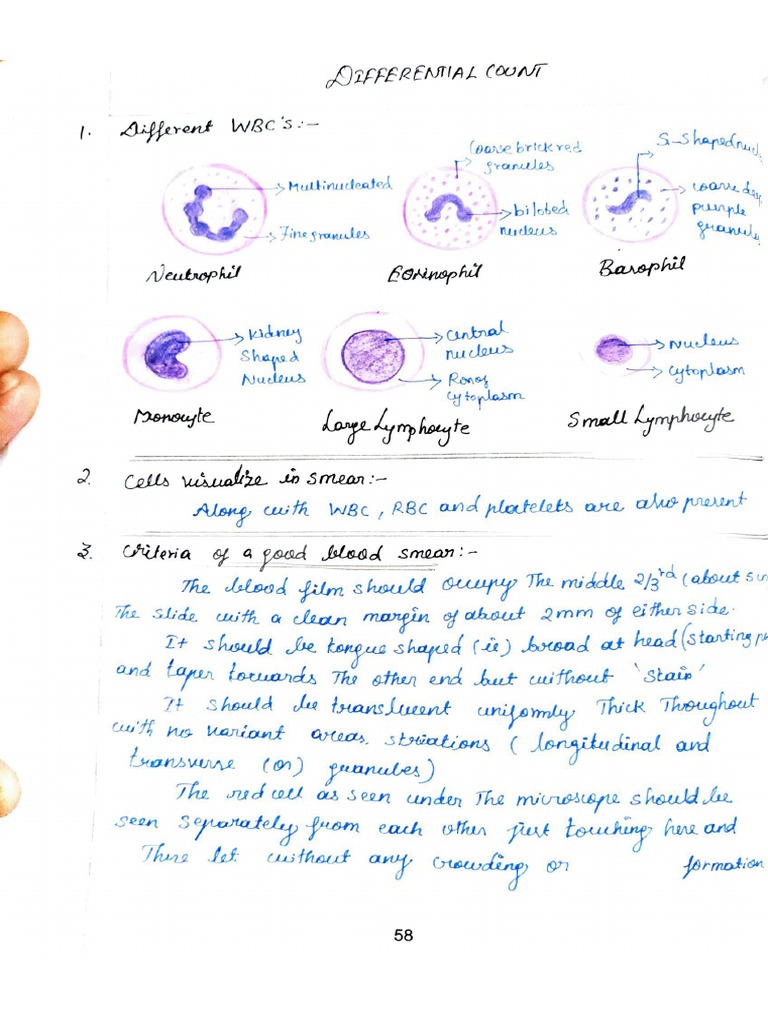 DIFFERENTIAL COUNT
1. Different WBC's:-
Multinucleated
Fine granules
Neutrophil
Coarse brick red
granules
bilobed
nucleus
Eosinophil
S-shaped nucl
coarse de
purple
granule
Basophil
Kidney
Shaped
Nucleus
Monocyte
Central
nucleus
cytoplasm
Large Lymphocyte
Nucleus
Cytoplasm
Small Lymphocyte
2. Cells visualize in smear:-
Along with WBC, RBC and platelets are also present
3. Criteria of a good blood smear:-
The blood film should occupy The middle 2/3rd (about
The slide with a clean margin of about 2mm of either side.
It should be tongue shaped (ie) broad at head (starting
and taper towards The other end but without 'Stain'
It should be translucent uniformly Thick Throughout
with no variant areas, striations ( longitudinal and
transverse (or) granules)
The red cell as seen under The microscope should be
seen separately from each other just touching here and
There let without any crowding or formation
58